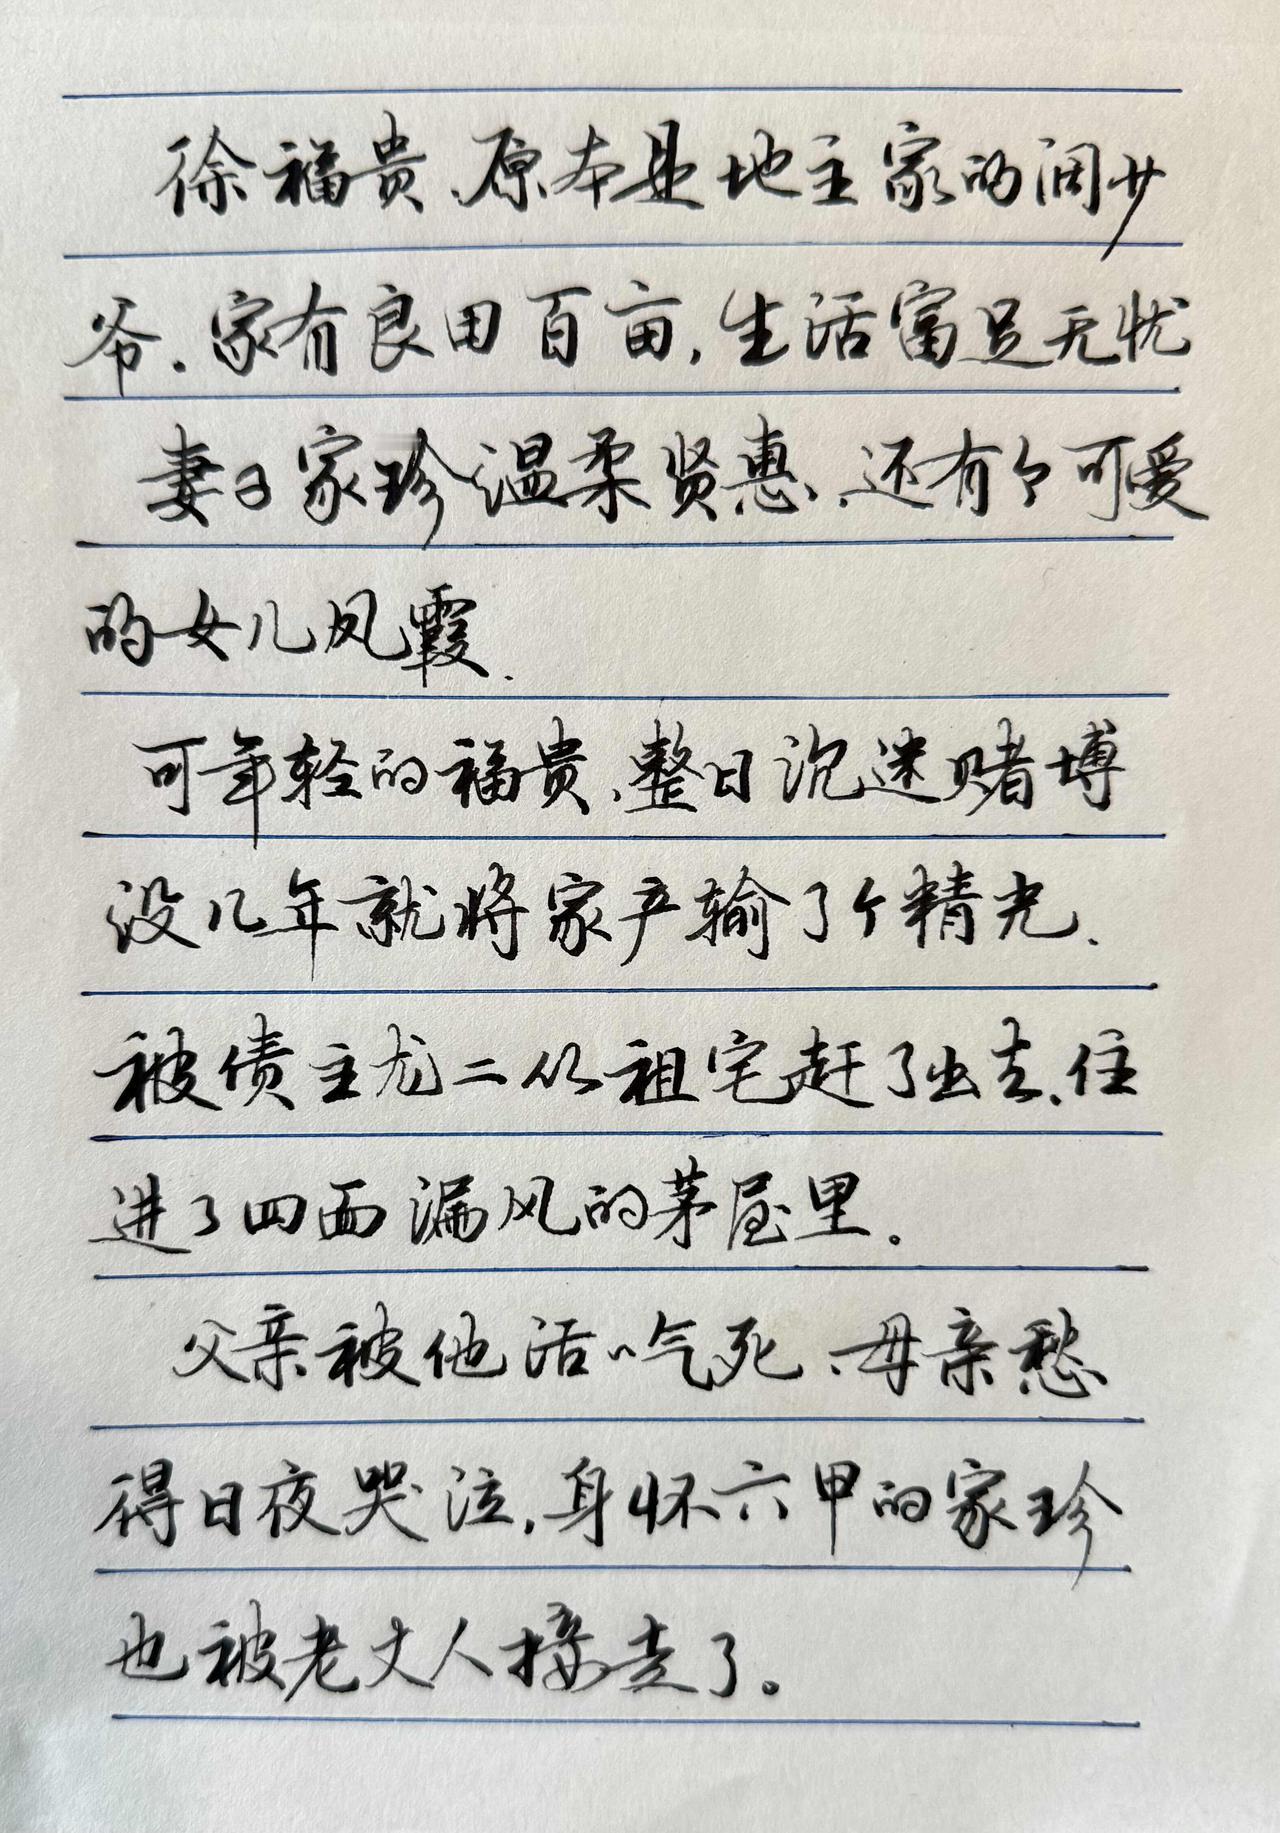 徐福贵、原本是地主家的阔少
爷．家有良田百亩，生活富足无忧
妻子家珍温柔贤惠、还有个可爱
的女儿凤霞．
可年轻的福贵、整日沉迷赌博
没几年就将家产输了个精光．
被债主龙二从祖宅赶了出去、住
进了四面漏风的茅屋里．
父亲被他活〃气死、母亲愁
得日夜哭泣，身怀六甲的家珍
也被老丈人接走了。